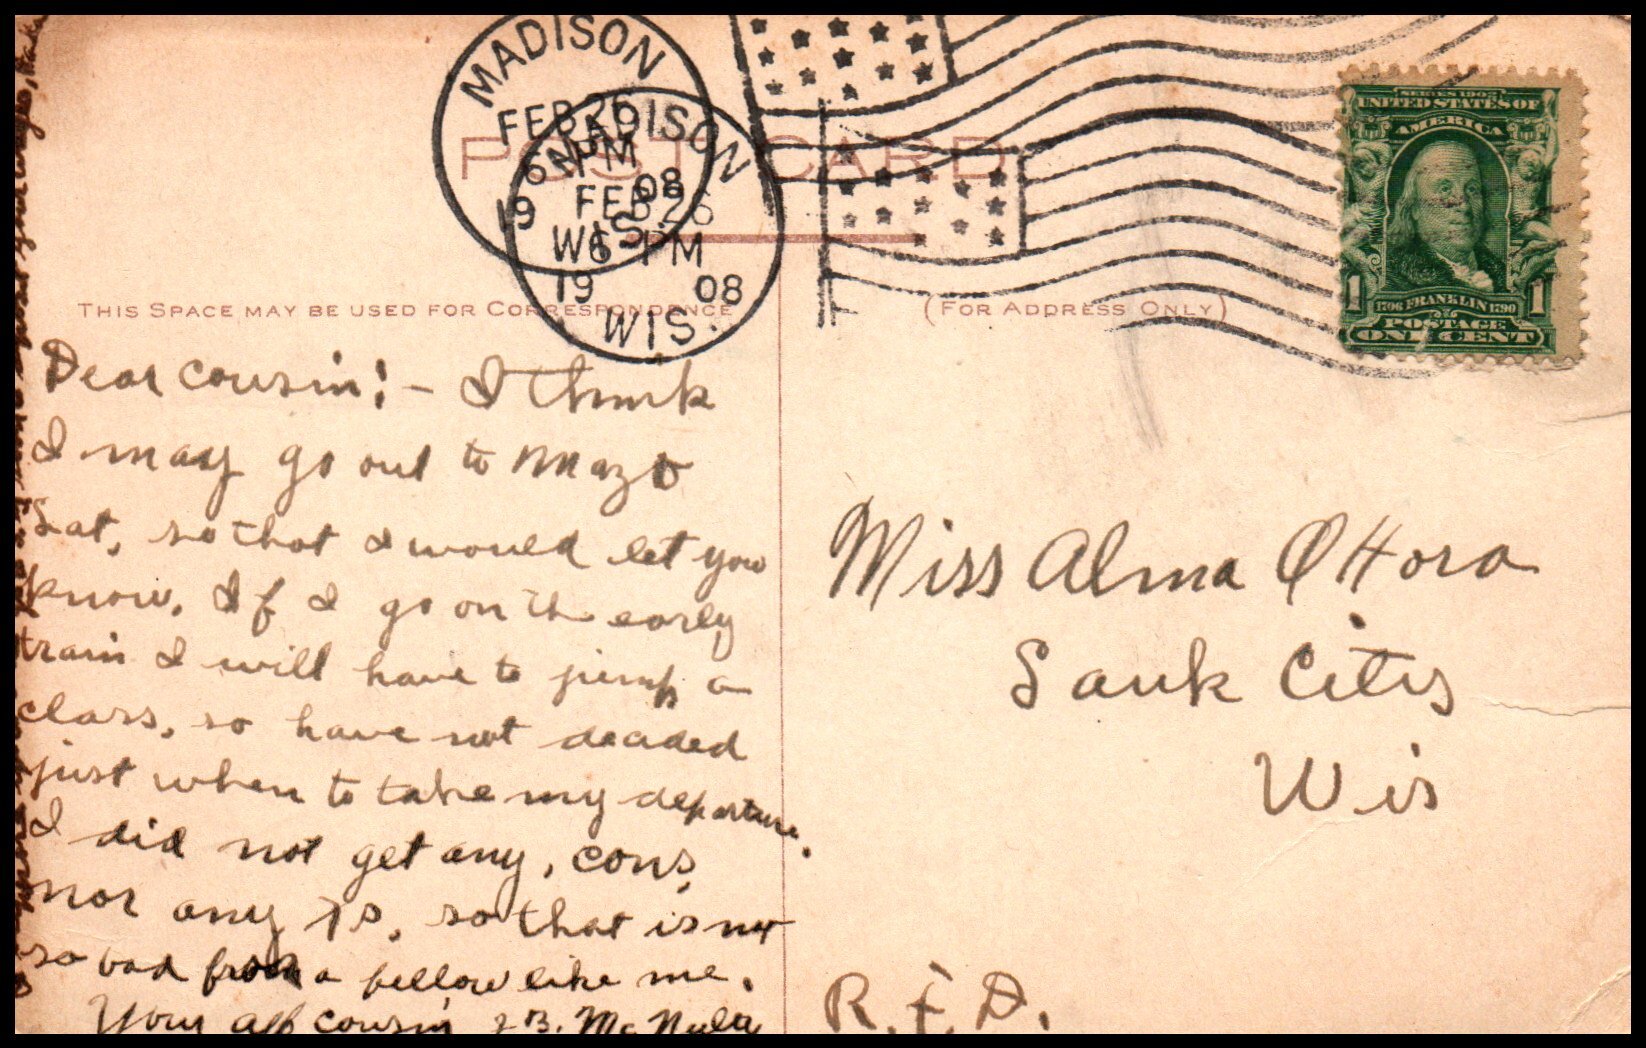 MADISON
FEB 26
6 PM
19 08
WIS.
MADISON
FEB 26
6 PM
19 08
WIS.
POST CARD
SERIES 1902
UNITED STATES OF
AMERICA
1706 FRANKLIN 1790
1 1
POSTAGE
ONE CENT
THIS SPACE MAY BE USED FOR CORRESPONDENCE
(FOR ADDRESS ONLY)
Dear cousin! - I think
I may go out to Mazo
Sat, so that I would let you
know. If I go on th early
train I will have to jump a
class, so have not decided
just when to take my departure.
I did not get any, cons,
nor any , so that is not
so bad from a fellow like me.
Your aff cousin McNulty
Miss Alma O'Hora
Sauk City
Wis
R.F.D.